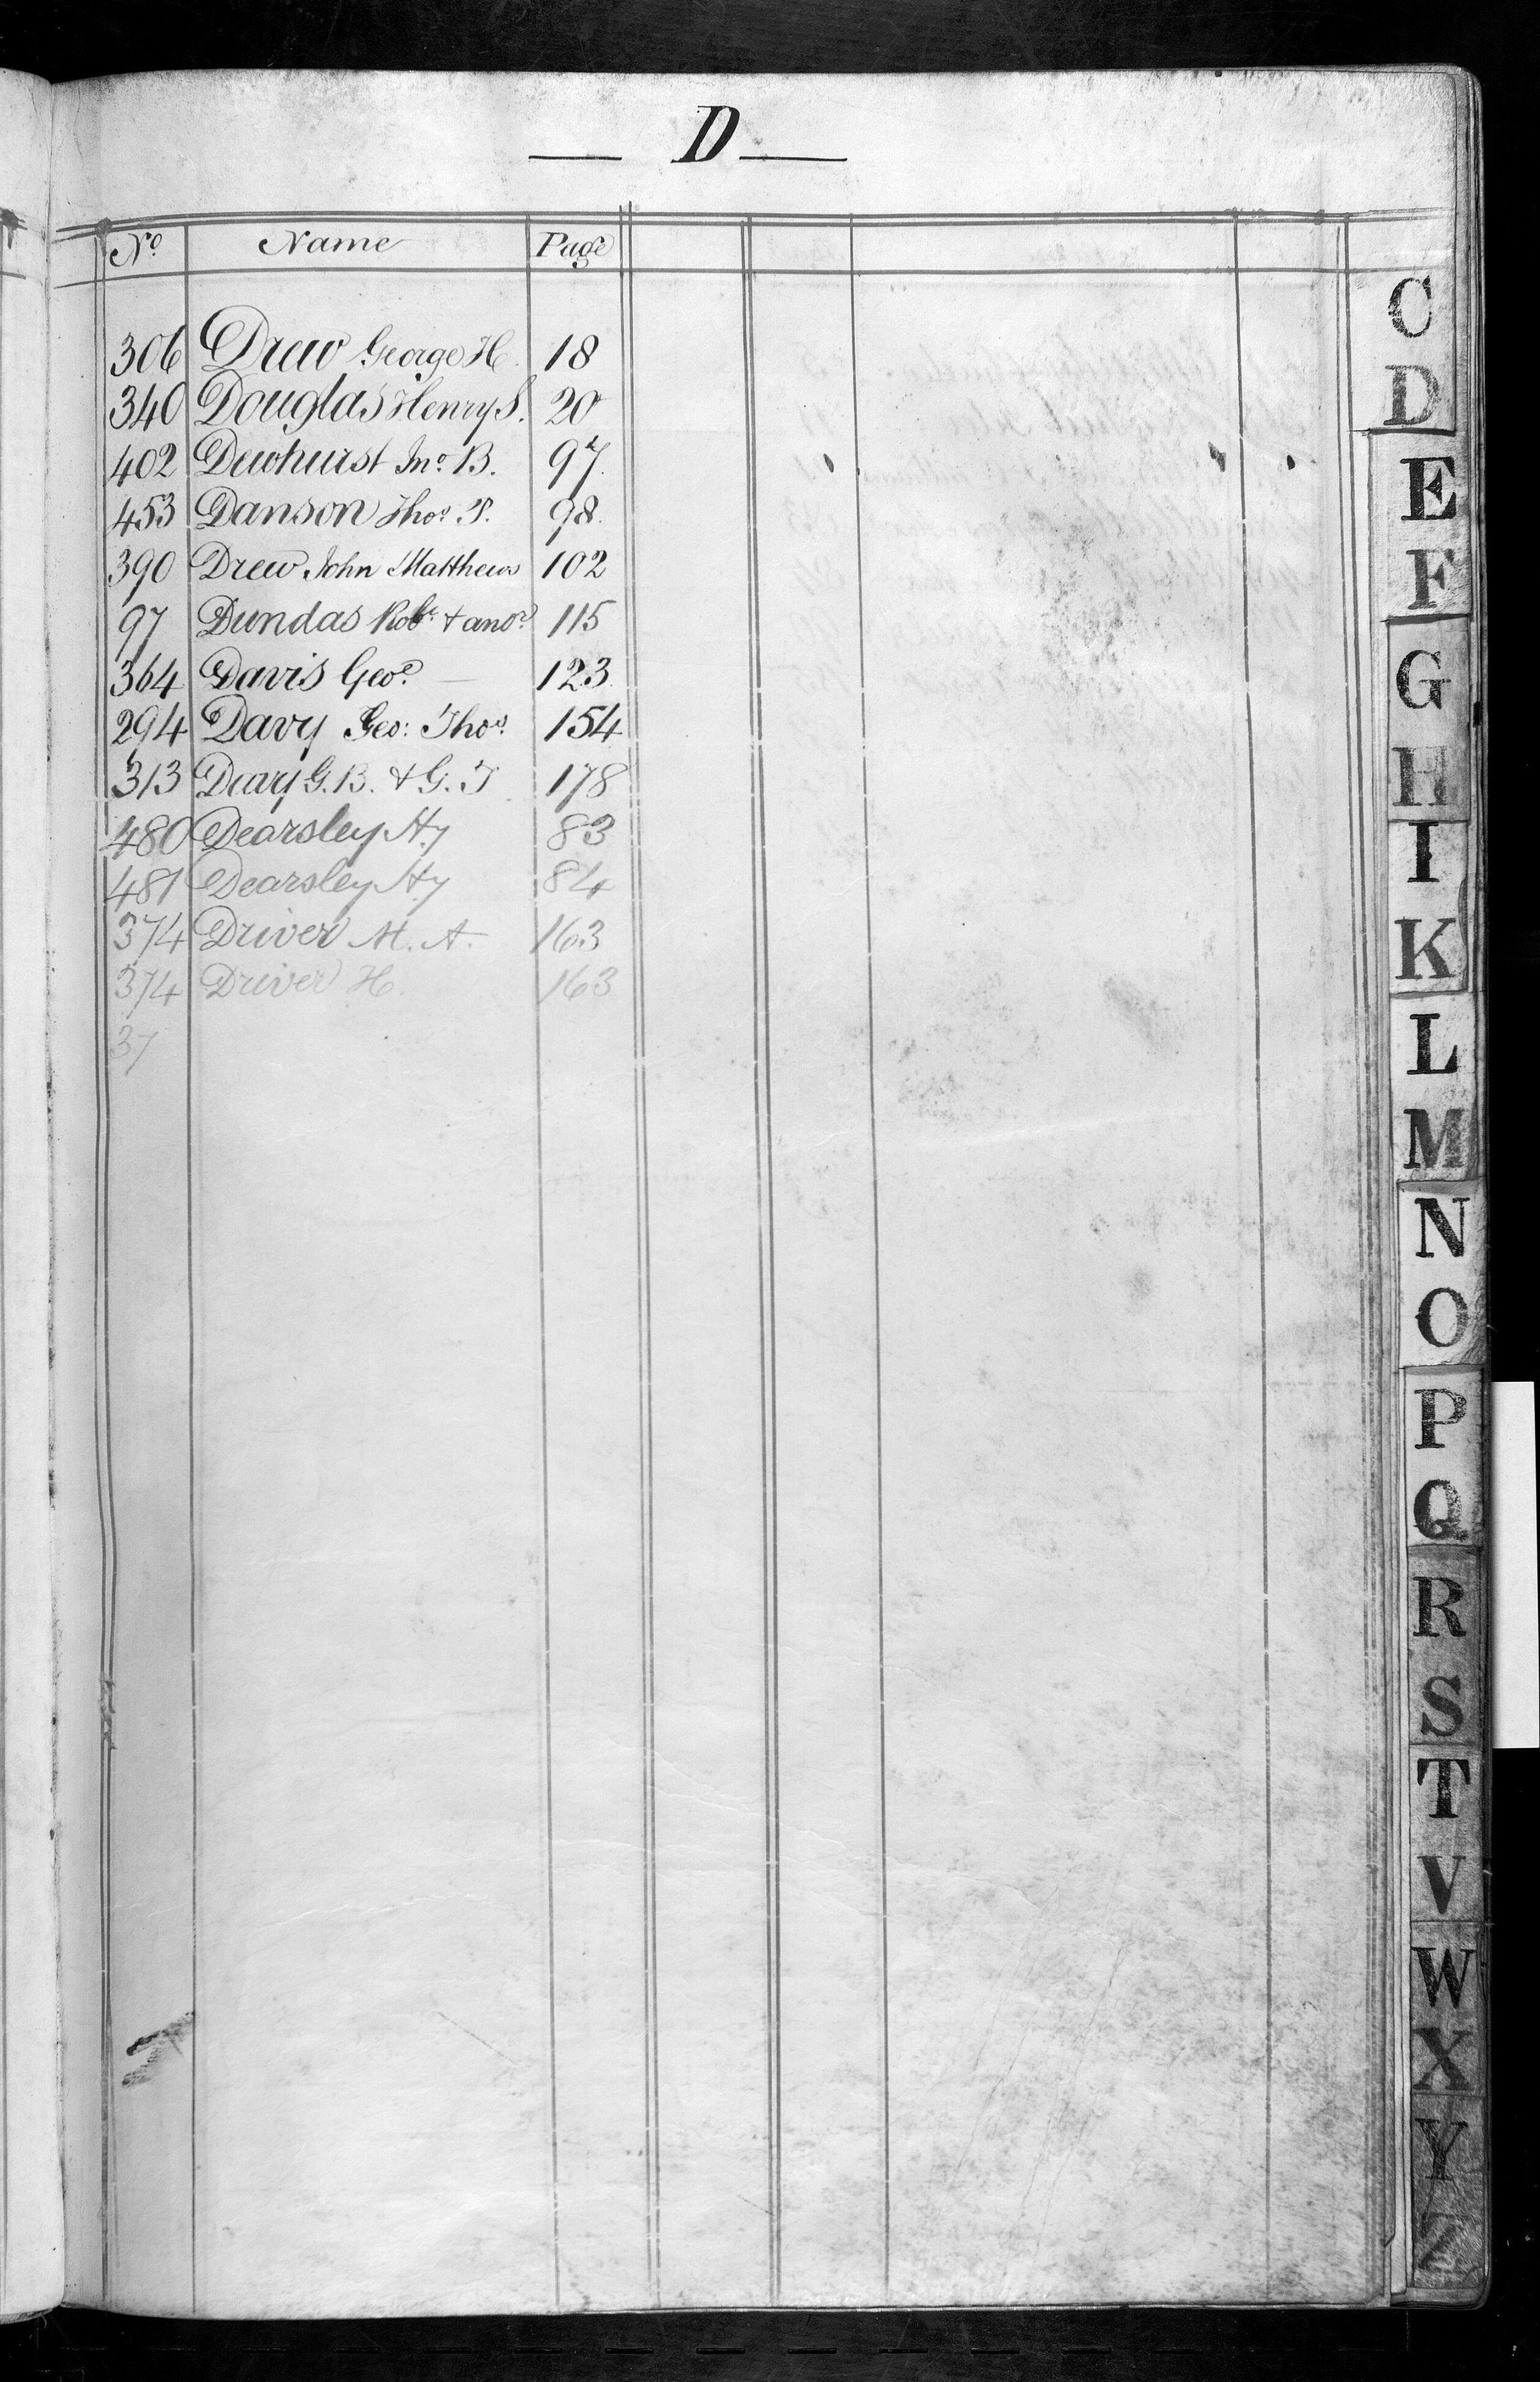 — D —
No Name Page
306 Drew George H. 18
340 Douglas Henry S. 20
402 Dewhurst Jno. B. 97.
453 Danson Thos. P. 98.
390 Drew John Matthews 102
97 Dundas Robt. & anor. 115
364 Davis Geo. — 123.
294 Davy Geo: Thos. 154
313 G.B. & G.T 178
480 Dearsley Hy 83
481 Dearsley Hy 84
374 Driver M. A. 163
374 Driver H. 163
37
C
D
E
F
G
H
I
K
L
M
N
O
P
Q
R
S
T
V
W
X
Y
Z